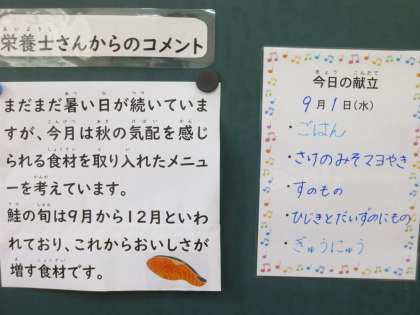 栄養士さんからのコメント
まだまだ暑い日が続いていま
すが、今月は秋の気配を感じ
られる食材を取り入れたメニュ
ーを考えています。
鮭の旬は9月から12月といわ
れており、これからおいしさが
増す食材です。
今日の献立
9月1日(水)
・ごはん
・さけのみそマヨやき
・すのもの
・ひじきとだいずのにもの
・ぎゅうにゅう